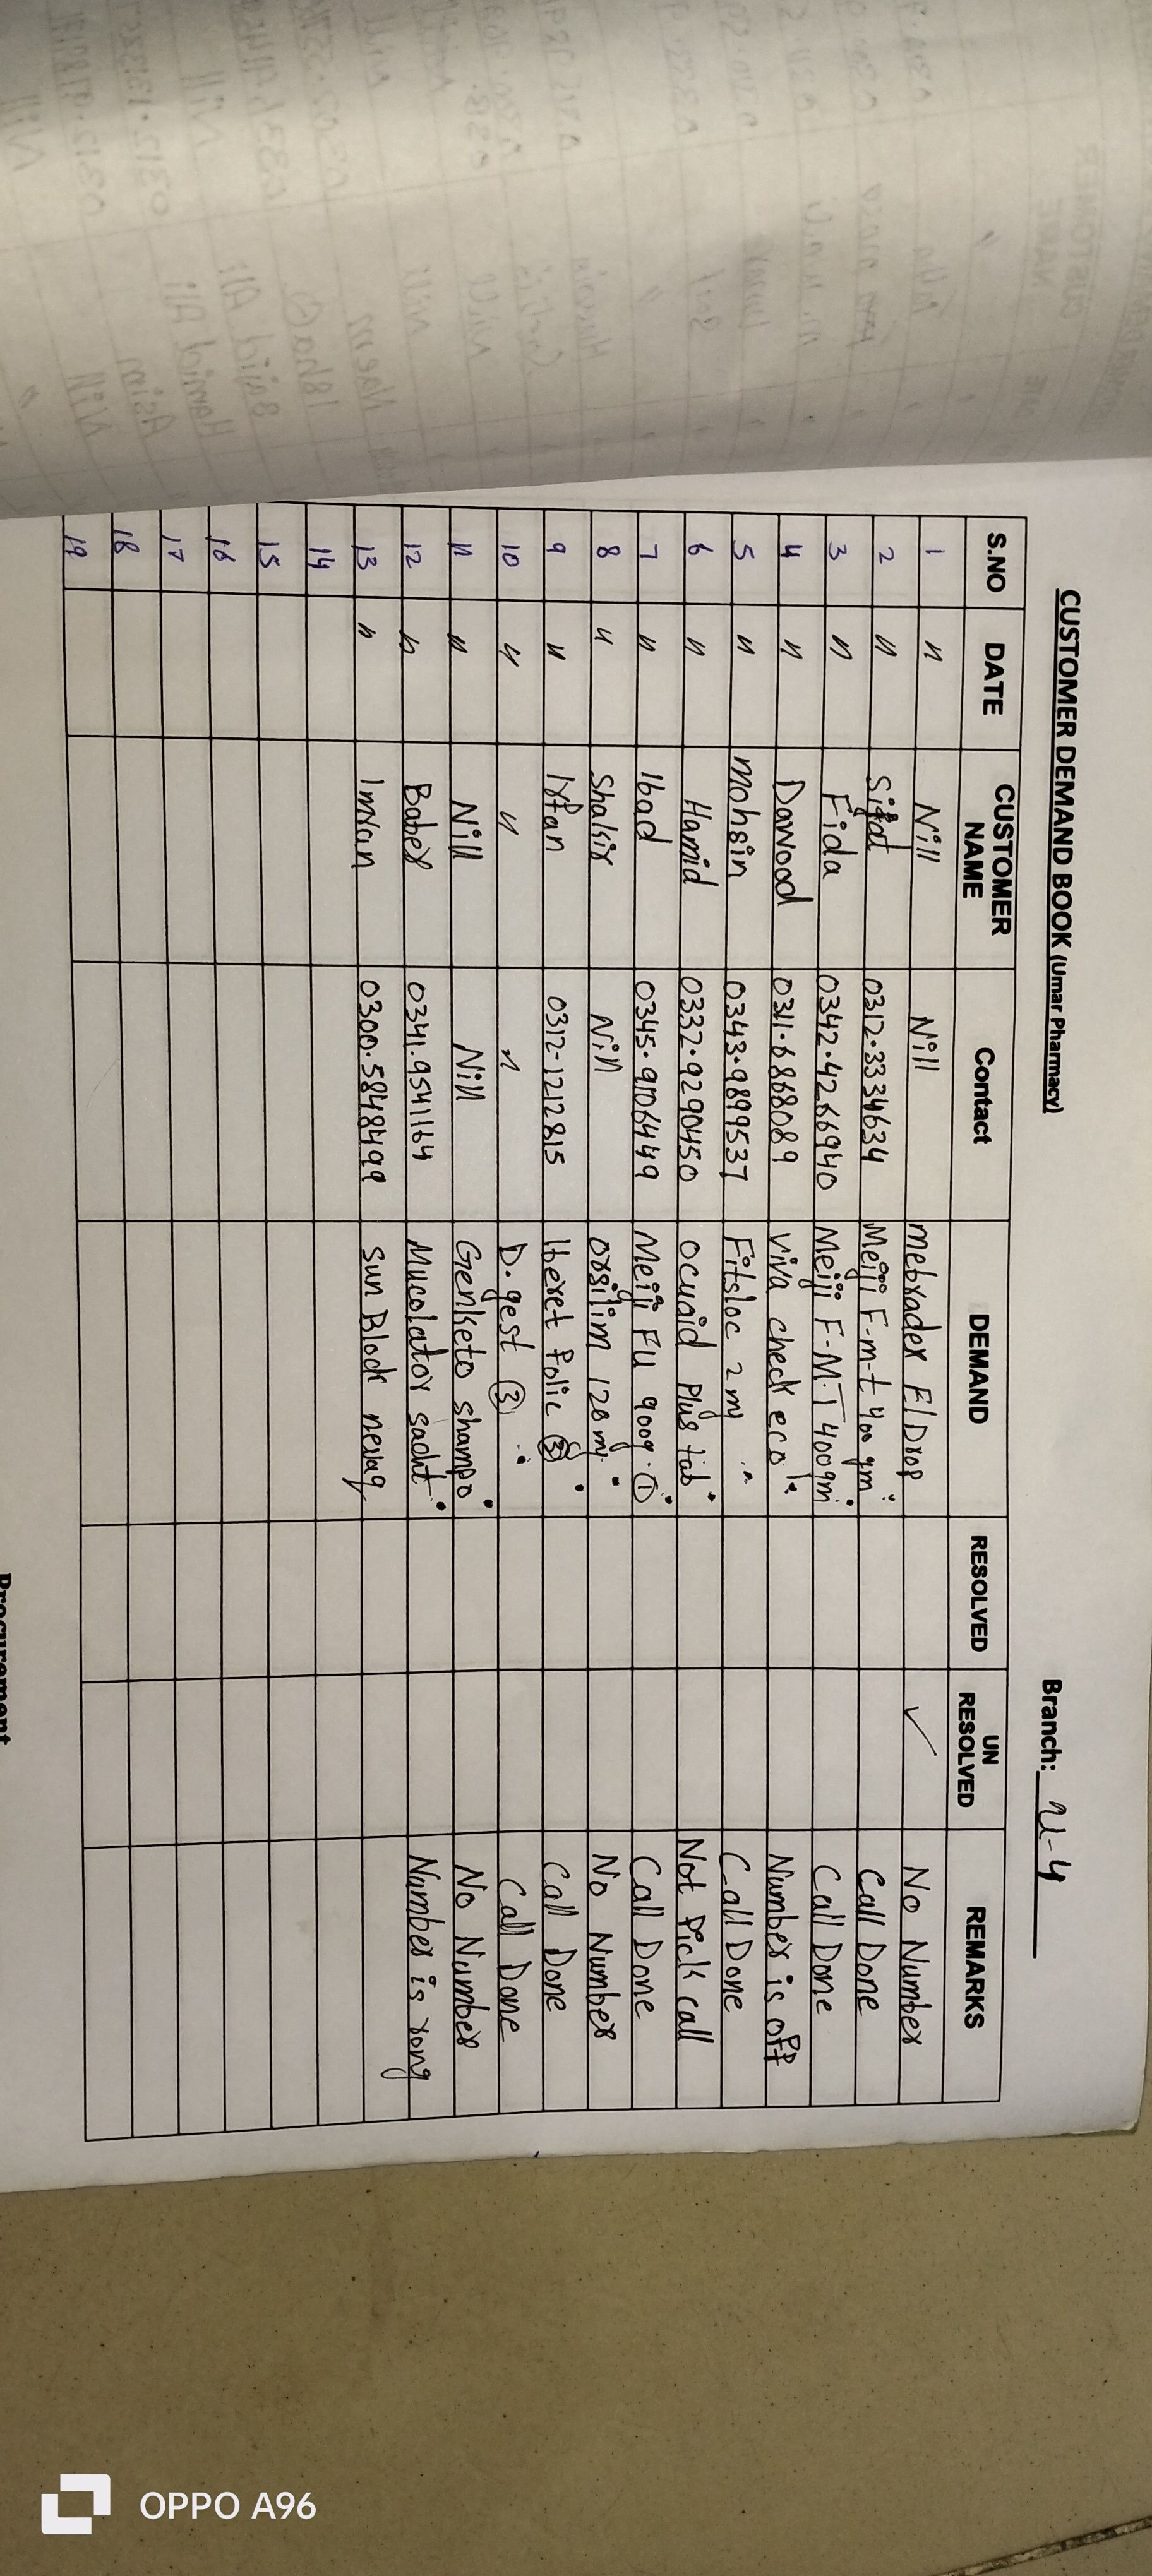 CUSTOMER DEMAND BOOK (Umar Pharmacy) Branch: U-4
S.NO DATE CUSTOMER NAME Contact DEMAND RESOLVED UN RESOLVED REMARKS
1 " Nill Nill mebradex E/Drop ✓ No Number
2 " Sifat 0312.3334634 Meiji F-m-t 400 gm Call Done
3 " Fida 0342.4266940 Meiji F-M.T 400gm Call Done
4 " Dawood 0311.6868089 viva check eco Number is off
5 " Mohsin 0343.9899537 Fitsloc 2 mg Call Done
6 " Hamid 0332.9290450 ocuoid Plus tab Not Pick call
7 " Ibad 0345.9106449 Meiji FU 900g. ① Call Done
8 " Shakir Nill orsilim 120 mg No Number
9 " Irfan 0312-1212815 Iberet folic ③ Call Done
10 " " " D.gest ③ Call Done
11 " Nill Nill Genketo shampo No Number
12 " Baber 0341.9541164 Mucolator sacht Number is rong
13 " Imran 0300.5848499 Sun Block
14
15
16
17
18
19
Procurement
OPPO A96